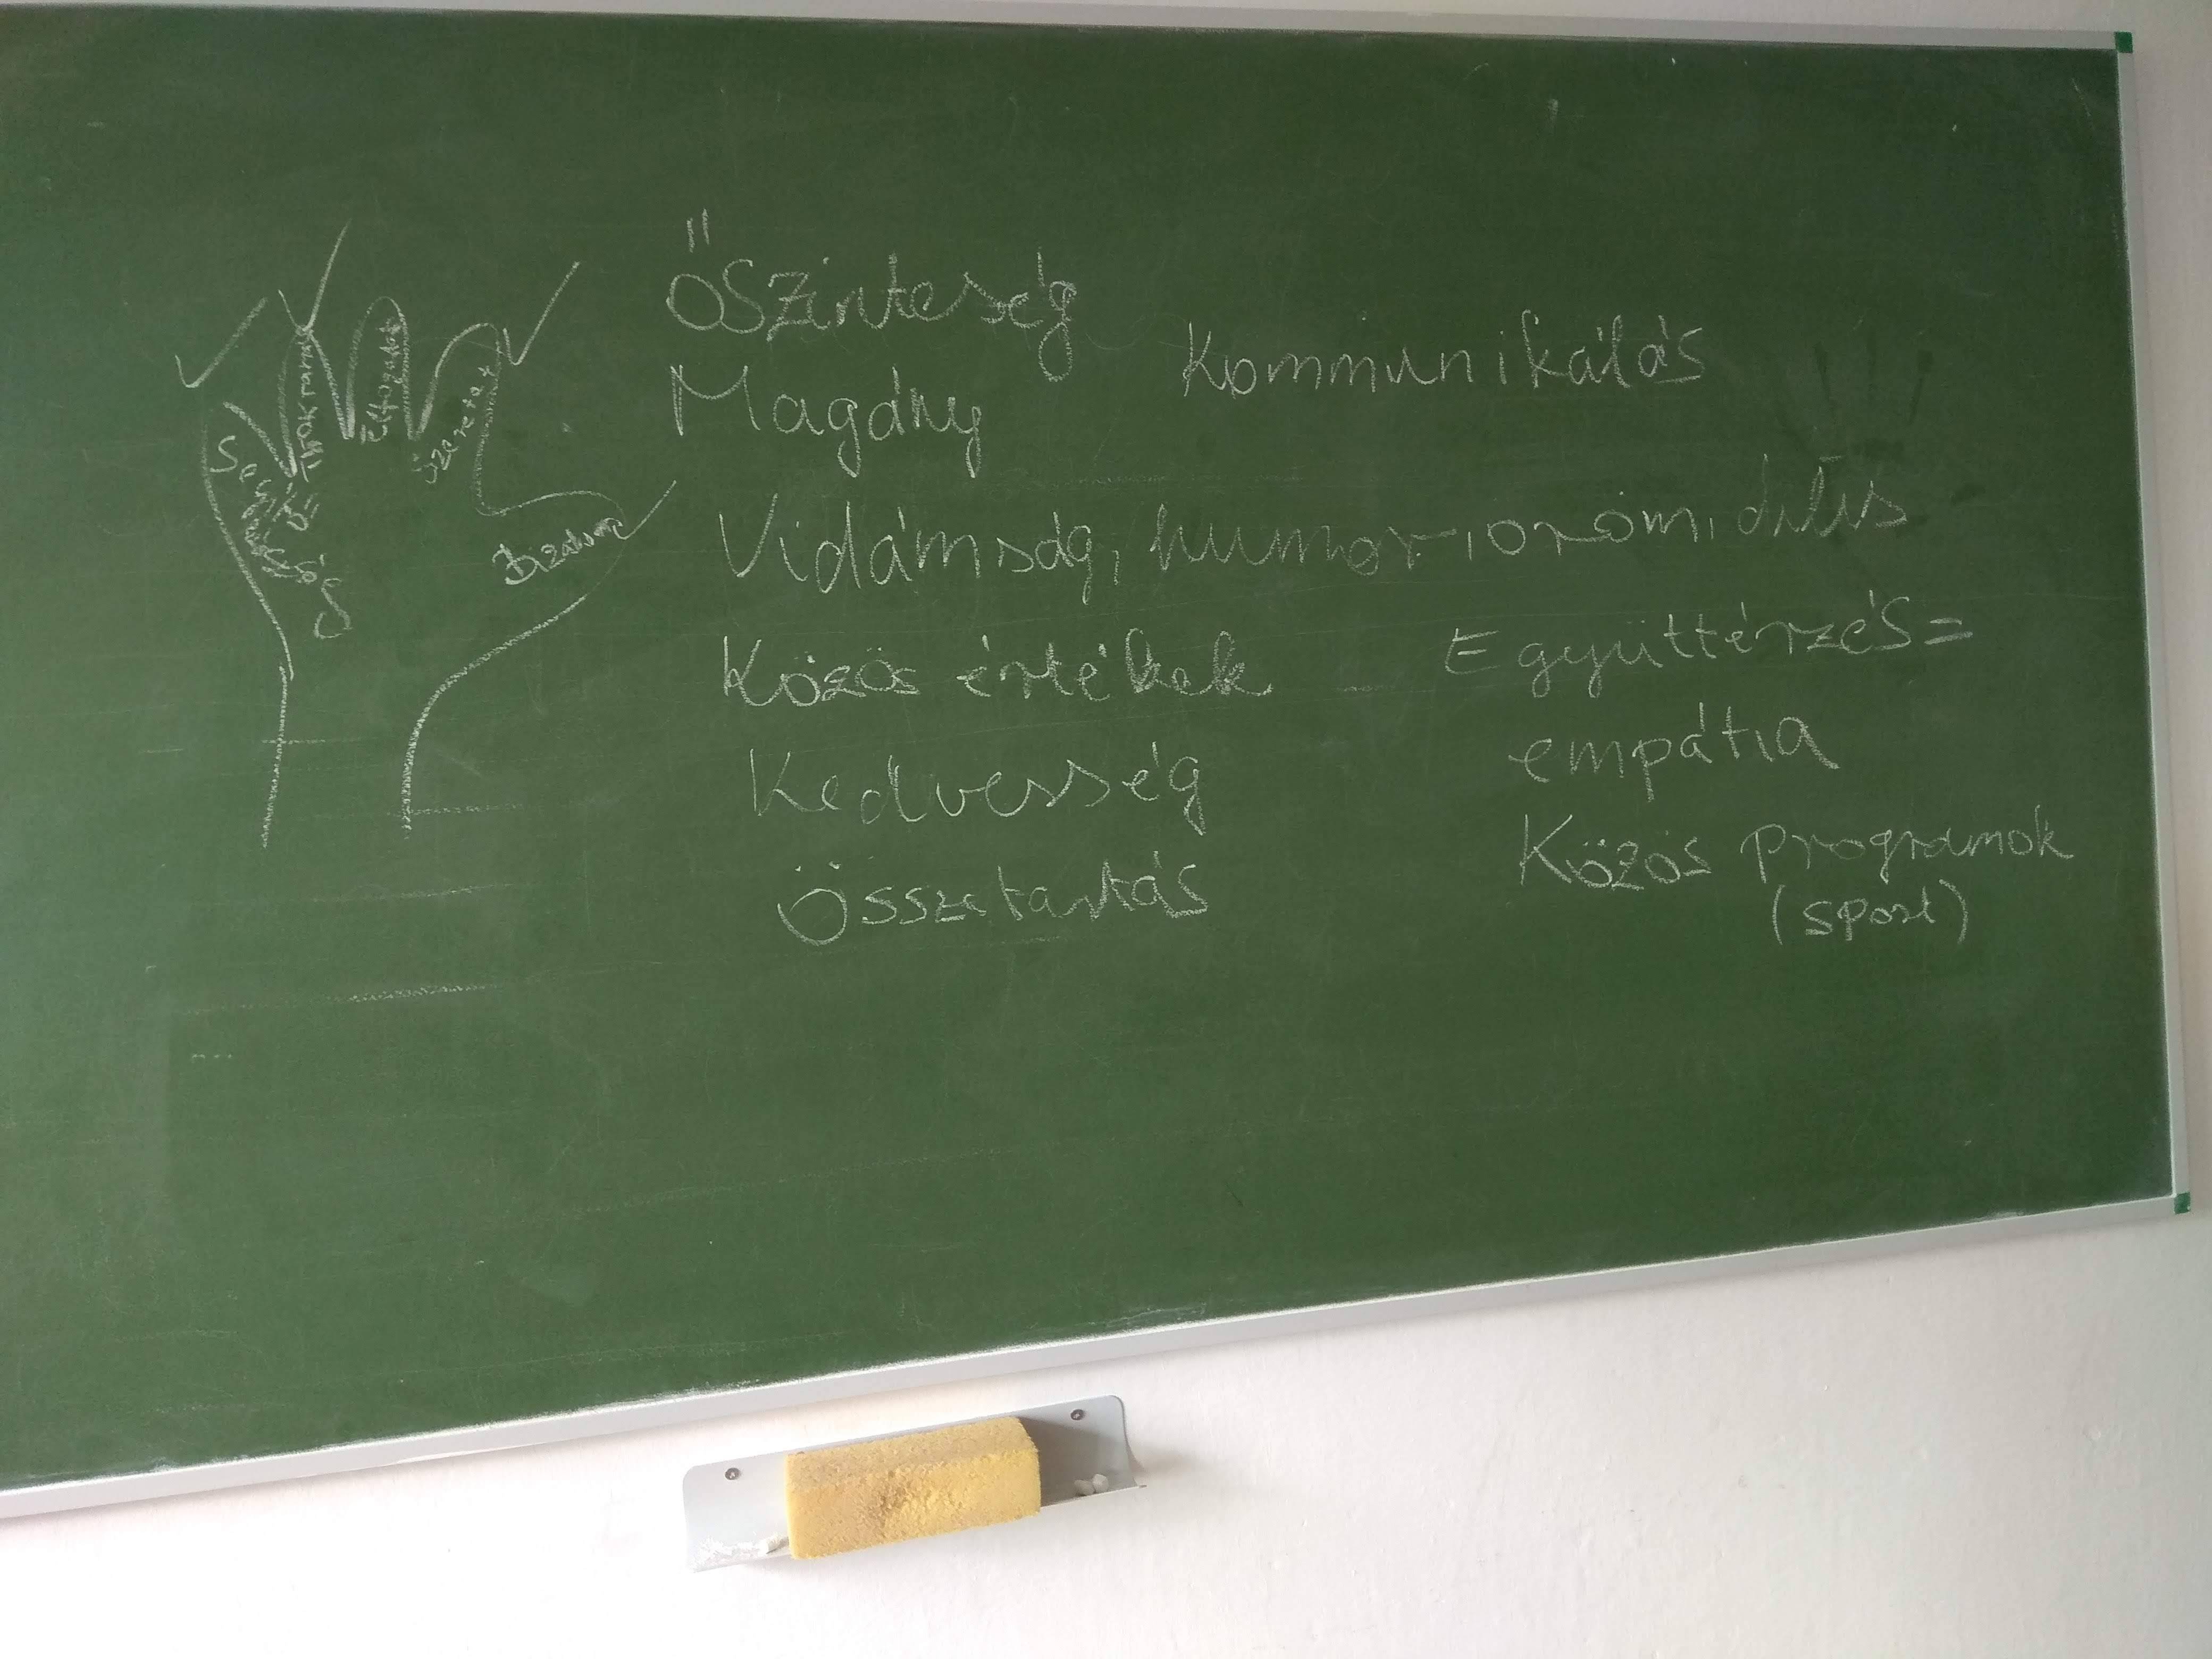 Őszinteség
Kommunikálás
Magány
Vidámság, humor, öröm, derűs
Közös értékek
Együttérzés =
empátia
Kedvesség
Közös programok
(sport)
Összetartás
Elfogadás
Szeretet
Bizalom